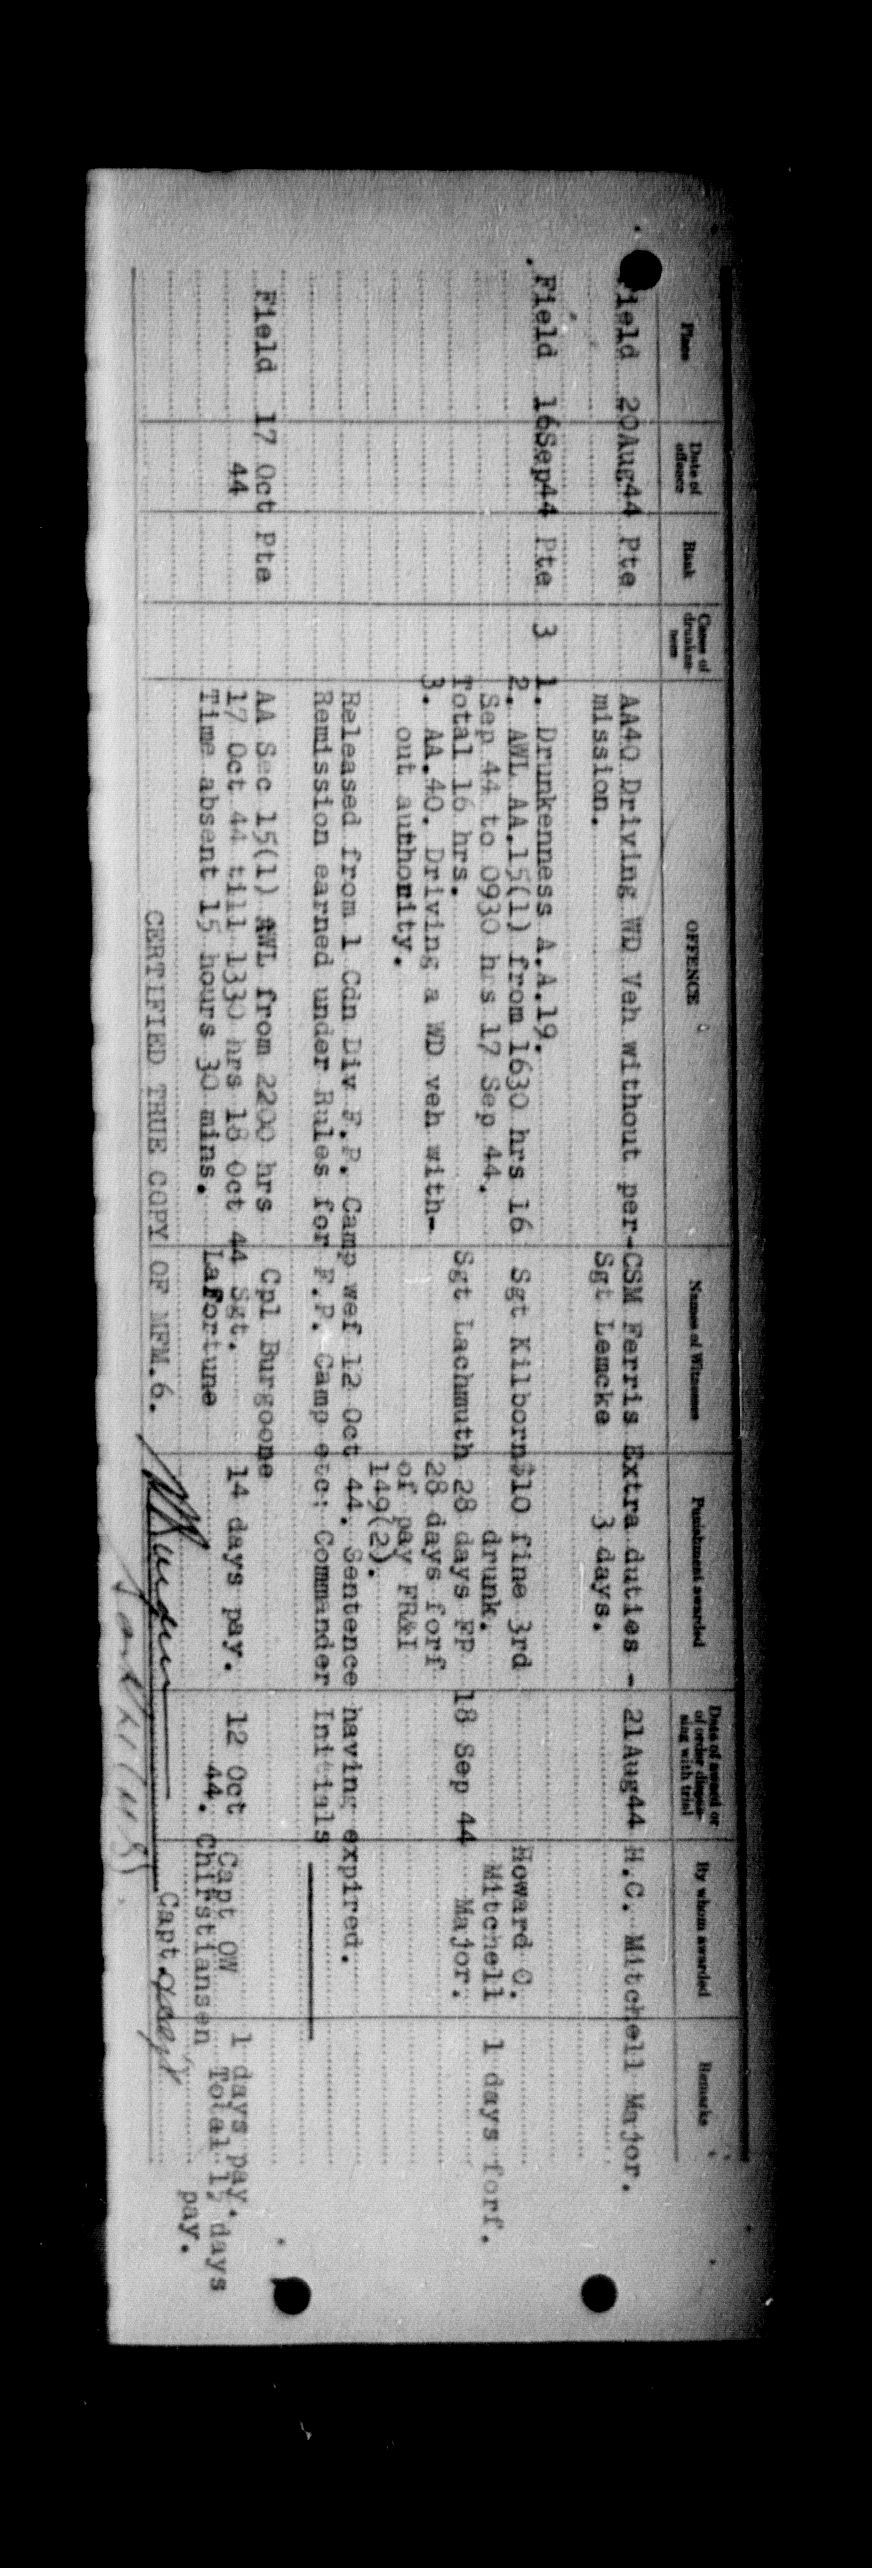 Place Date of offence Rank Cases of drunkenness OFFENCE Names of Witnesses Punishment awarded Date of award or of order dispensing with trial By whom awarded Remarks
Field 20Aug44 Pte AA40 Driving WD Veh without per- CSM Ferris Extra duties - 21Aug44 H.C. Mitchell Major.
mission. Sgt Lemcke 3 days.
Field 16Sep44 Pte 3 1. Drunkenness A.A.19.
2. AWL AA.15(1) from 1630 hrs 16 Sgt Kilborn $10 fine 3rd Howard C.
Sep 44 to 0930 hrs 17 Sep 44. drunk. Mitchell 1 days forf.
Total 16 hrs. Sgt Lachmuth 28 days FP 18 Sep 44 Major.
3. AA.40. Driving a WD veh with- 28 days forf
out authority. of pay FR&I
149(2).
Released from 1 Cdn Div F.P. Camp wef 12 Oct 44. Sentence having expired.
Remission earned under Rules for F.P. Camp etc; Commander Initials
Field 17 Oct Pte AA Sec 15(1) AWL from 2200 hrs Cpl Burgoone
44 17 Oct 44 till 1330 hrs 18 Oct 44 Sgt. 14 days pay. 12 Oct Capt OW 1 days pay.
Time absent 15 hours 30 mins. Lafortune 44. Chirstiansen Total 15 days
pay.
CERTIFIED TRUE COPY OF MFM.6. Capt